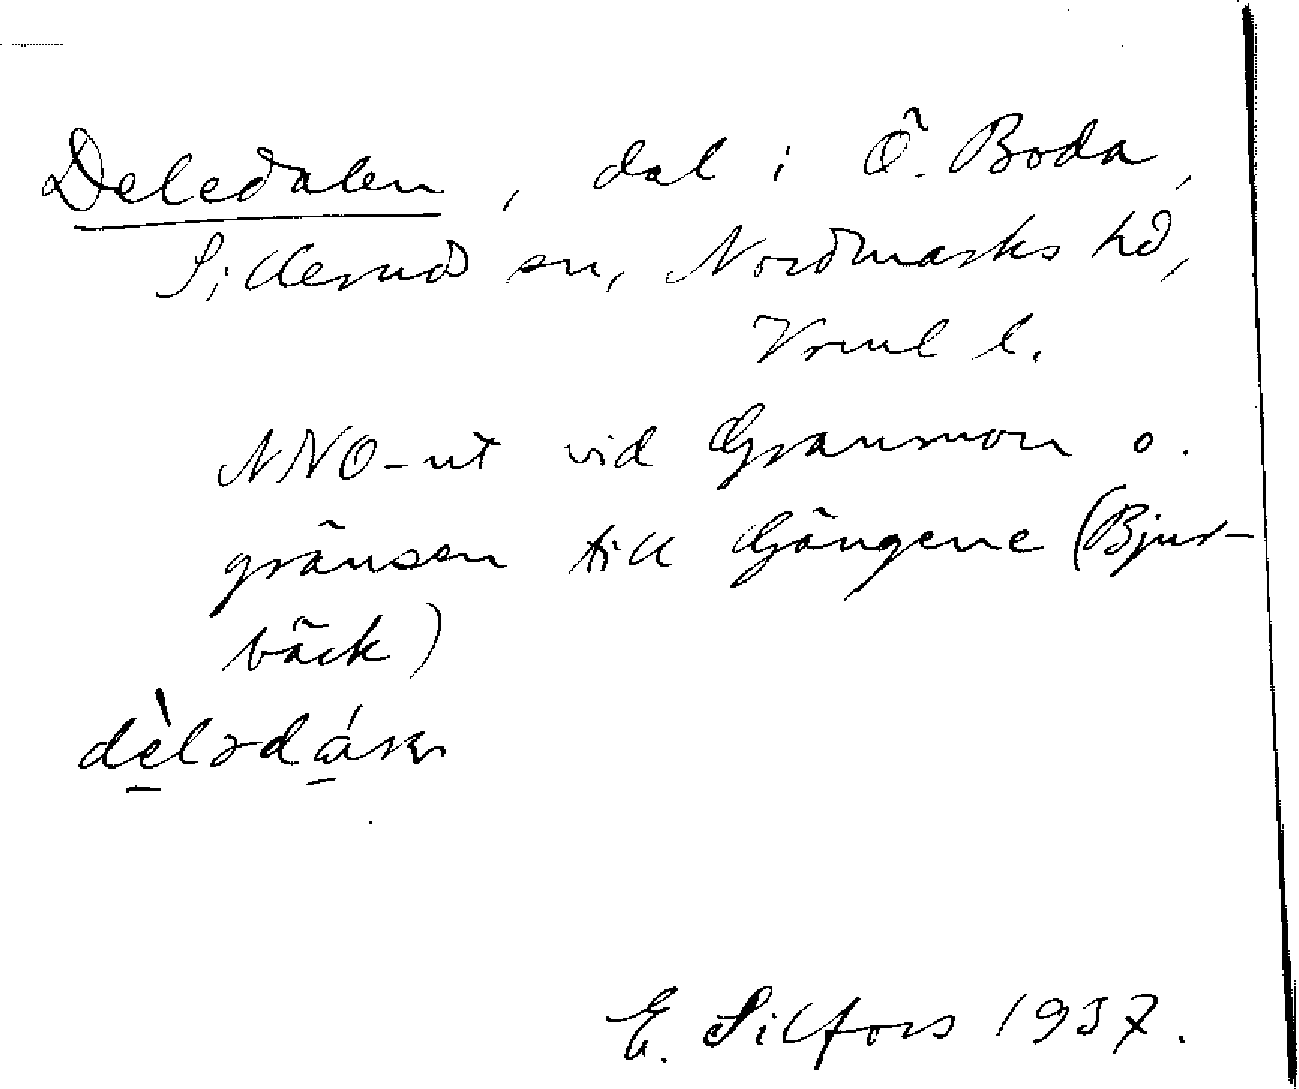 Deledalen, dal i Ö. Boda,
Sillerud sn, Nordmarks hd,
Vrml l.
NNO-ut vid Gransmon o.
gränsen till Gängene (Bjur-
bäck)
E. Silfors 1937.